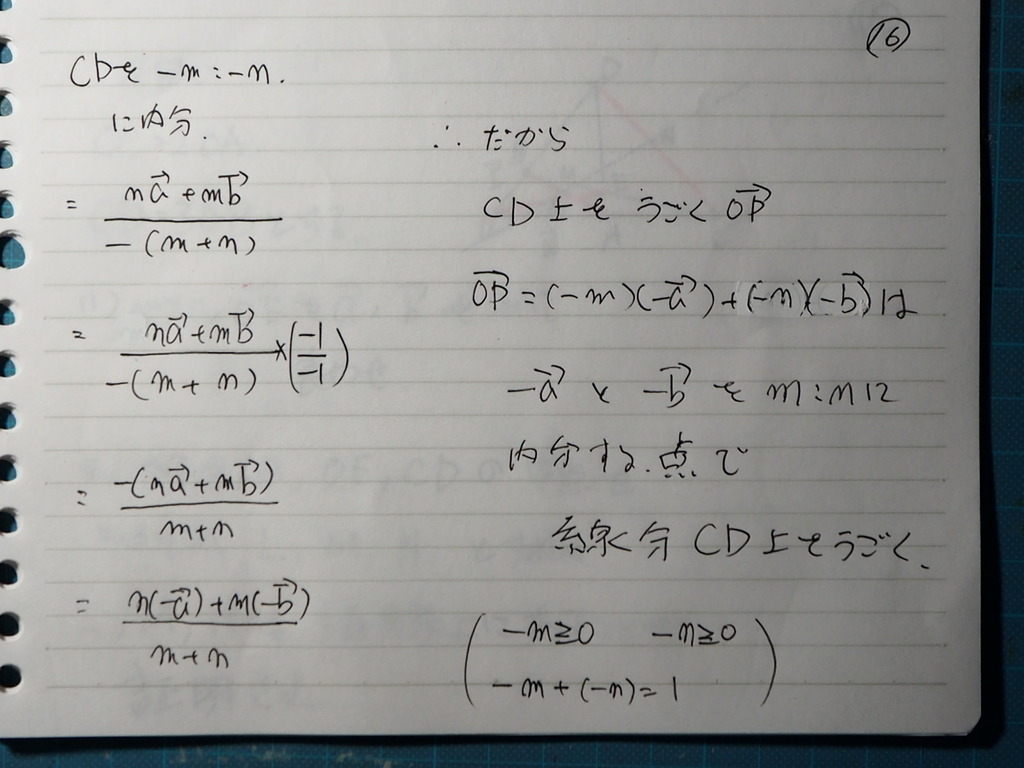 ⑯
CDを -m:-n.
に内分.
= \frac{n\vec{a}+m\vec{b}}{-(m+n)}
= \frac{n\vec{a}+m\vec{b}}{-(m+n)}×(\frac{-1}{-1})
= \frac{-(n\vec{a}+m\vec{b})}{m+n}
= \frac{n(-\vec{a})+m(-\vec{b})}{m+n}
∴ だから
CD上を うごく \vec{OP}
\vec{OP}=(-m)(-\vec{a})+(-n)(-\vec{b})は
-\vec{a} と -\vec{b} を m:nに
内分する.点で
線分CD上をうごく.
(-m≧0 -n≧0
-m+(-n)=1)